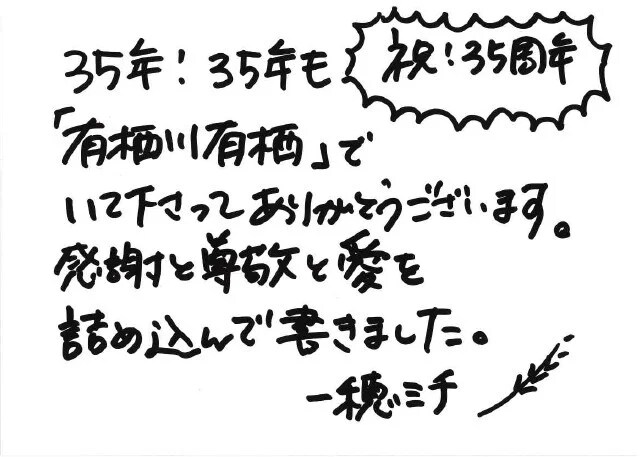 35年！35年も
祝！35周年
「有栖川有栖」で
いて下さってありがとうございます。
感謝と尊敬と愛を
詰め込んで書きました。
一穂ミチ